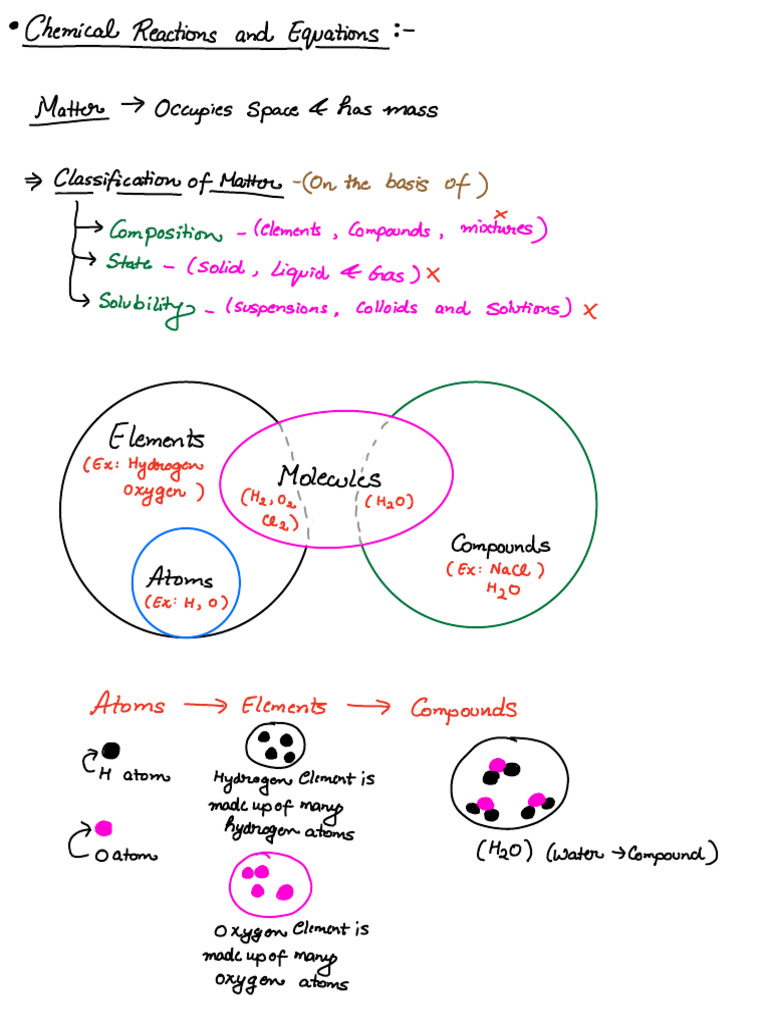 • Chemical Reactions and Equations :-
Matter → Occupies Space & has mass
⇒ Classification of Matter - (On the basis of)
→ Composition - (Elements, Compounds, mixtures) x
→ State - (Solid, Liquid & Gas) x
→ Solubility - (Suspensions, Colloids and Solutions) x
Elements
(Ex: Hydrogen
Oxygen)
Molecules
(H₂, O₂
Cl₂)
(H₂O)
Compounds
(Ex: NaCl)
H₂O
Atoms
(Ex: H, O)
Atoms → Elements → Compounds
H atom
Hydrogen Element is
made up of many
hydrogen atoms
O atom
(H₂O) (Water → Compound)
Oxygen Element is
made up of many
oxygen atoms